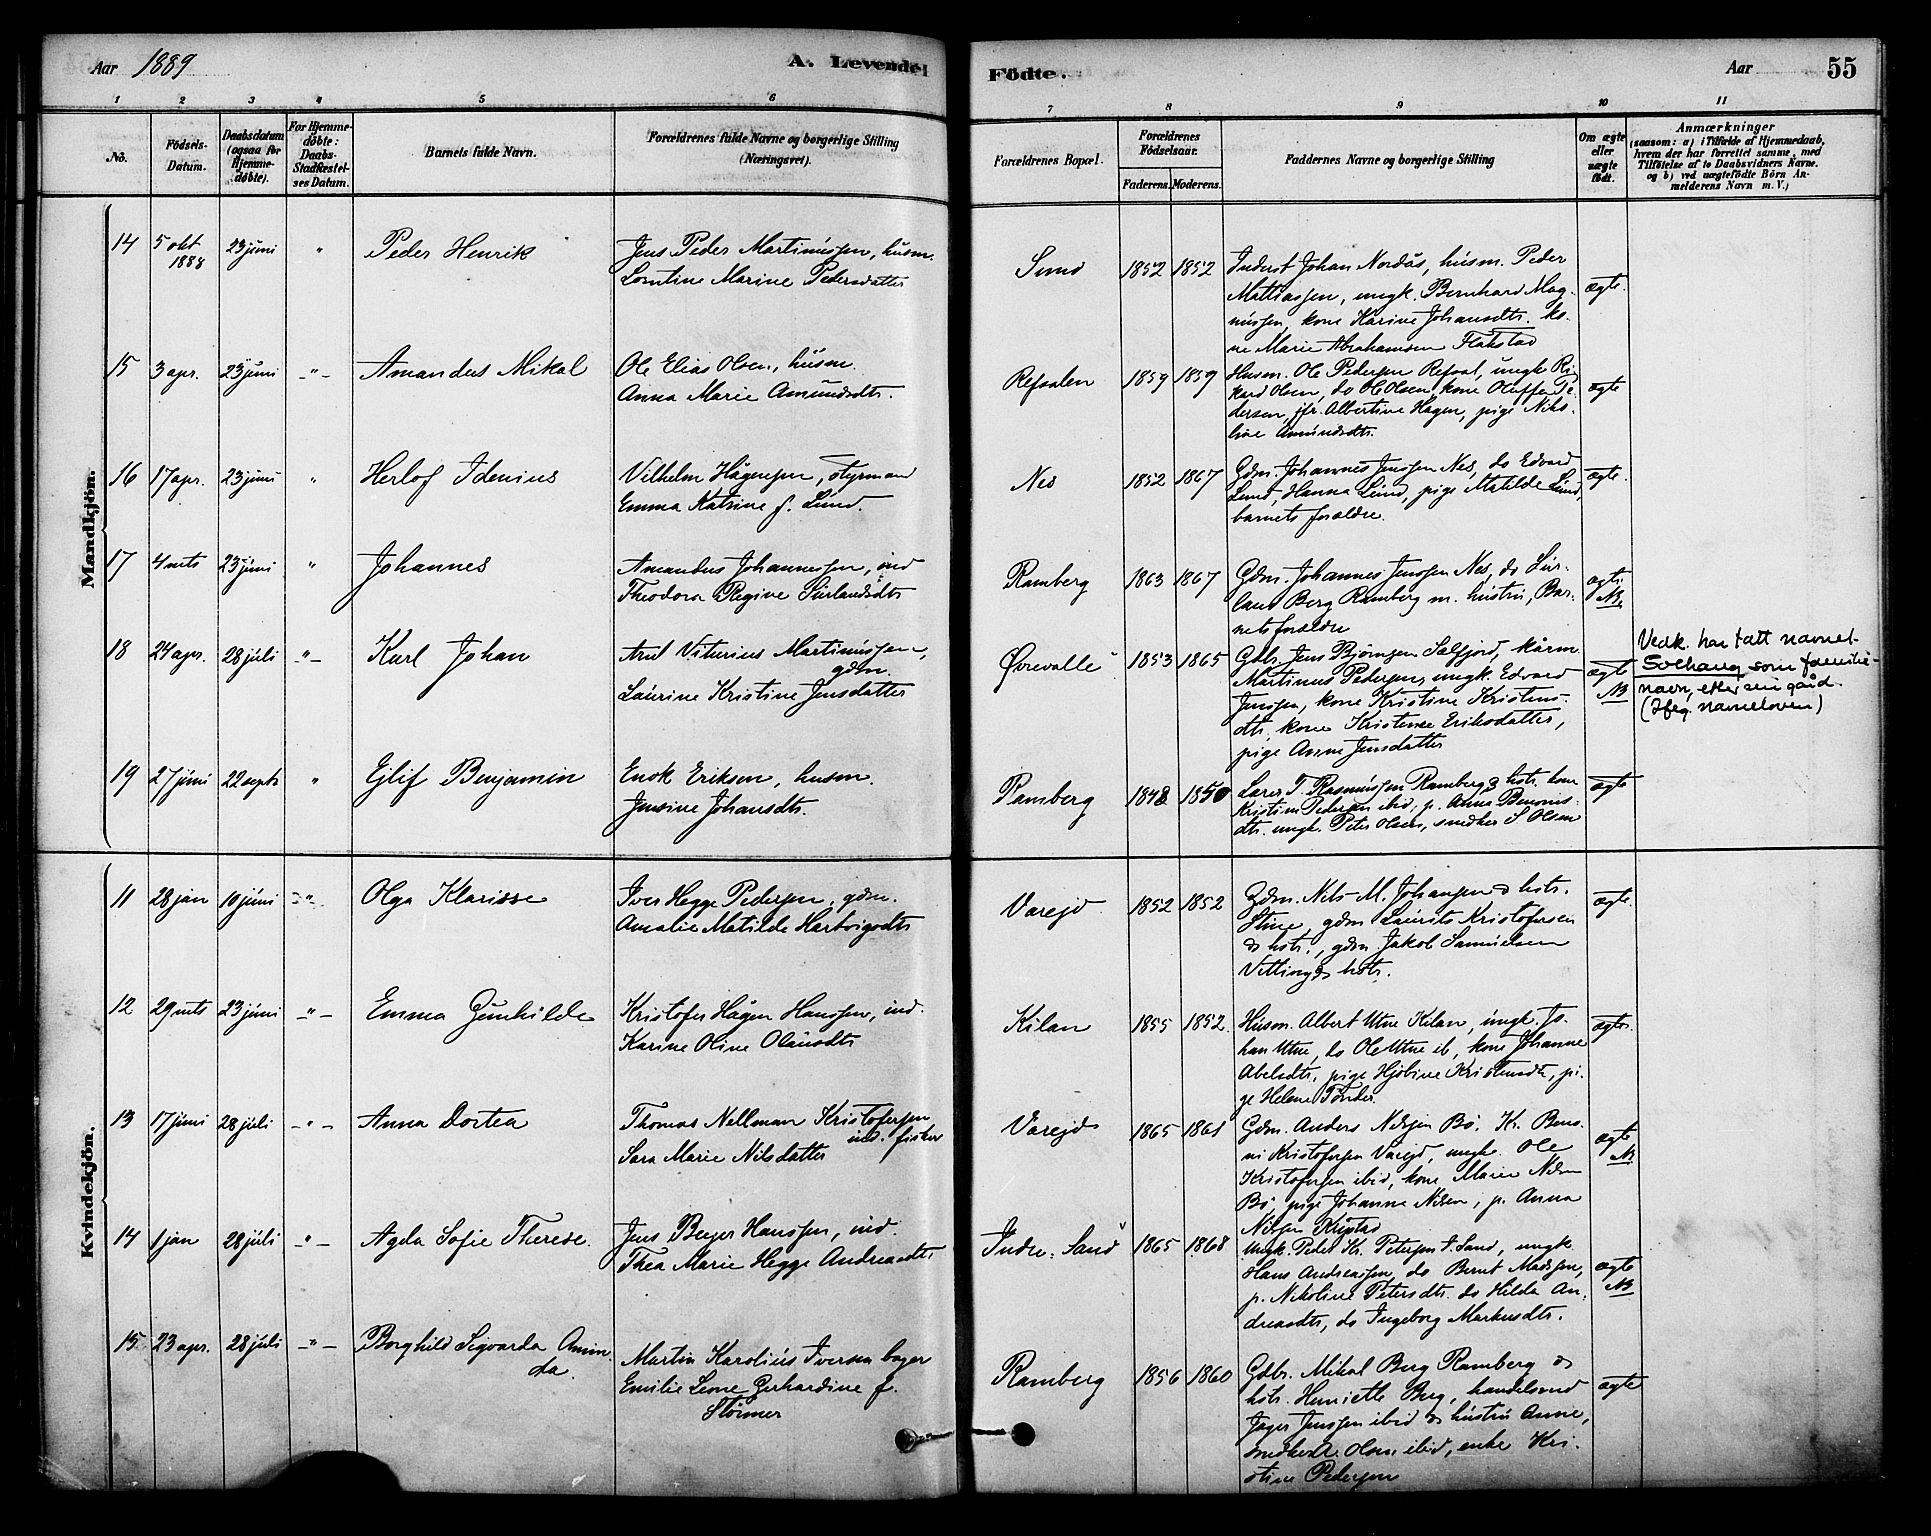 Aar 1889
A. Levende
Fødte.
Aar
55
1
2
3
4
5
6
7
8
9
10
11
No.
Fødsels-
Datum.
Daabsdatum
(ogsaa for
Hjemme-
døbte).
For Hjemme-
døbte:
Daabs-
Stadfæstel-
ses Datum.
Barnets fulde Navn.
Forældrenes fulde Navne og borgerlige Stilling
(Næringsvei).
Forældrenes Bopæl.
Forældrenes
Fødselsaar.
Faderens.
Moderens.
Faddernes Navne og borgerlige Stilling
Om ægte
eller
uægte
født.
Anmærkninger
(saasom: a) i Tilfælde af Hjemmedaab,
hvem der har forrettet samme, med
Tilføielse af to Daabsvidners Navne.
og b) ved uægtefødte Børn An-
melderens Navn m. V.)
Mandkjön.
14
5 okt
1888
23 juni
"
Peder Henrik
Jens Peder Martinussen, husm.
Lorntine Marine Pedersdatter
Sund
1852
1852
Inderst Johan Nordås, husm. Peder
Mattiassen, ungk. Bernhard Mag-
nussen, kone Karine Johansdtr. ko-
ne Marie Abrahamsen Flakstad
ægte.
15
3 apr.
23 juni
-"-
Amandus Mikal
Ole Elias Olsen, husm.
Anna Marie Amundsdtr.
Refsalen
1859
1859
Husm. Ole Pedersen Refsal, ungk Ri-
kard Olsen, do Ole Olsen, kone Oluffa Pe-
dersen, jfr. Albertine Hagen, pige Niko-
line Amundsdtr.
ægte
16
17 apr.
23 juni
"
Herlof Idenius
Vilhelm Hågensen, styrmand
Emma Katrine f. Lund.
Nes
1852
1867
Gdm. Johannes Jenssen Nes, do Edvard
Lund, Hanna Lund, pige Matilde Lund,
barnets forældre.
ægte.
17
4 mts
23 juni
"
Johannes
Amandus Johannessen, ind
Theodora Regine Surlandsdtr
Ramberg
1863
1867
Gdm. Johannes Jenssen Nes, do Sur-
land Berg Ramberg m. hustru, Bar-
nets forældre
ægte.
NB
18
24 apr.
28 juli
-"-
Karl Johan
Arnt Viturius Martinussen,
gdm.
Laurine Kristine Jensdatter
Ørevalle
1853
1865
Gdbr. Jens Bjørnsen Selfjord, kårm.
Martinus Pedersen, ungk. Edvard
Jenssen, kone Kristine Kristens-
dtr, kone Kristense Eriksdatter,
pige Anne Jensdatter
ægte
NB
Vedk. har tatt navnet
Solhaug som familie-
navn, etter sin gård.
(Ifølg. navneloven)
19
27 juni
22 septr
"
Ejlif Benjamin
Enok Eriksen, husm.
Jensine Johansdtr.
Ramberg
1848
1850
Lærer T. Rasmussen Ramberg & hstr. kone
Kristine Pedersen ibid, p. Anna Benonis-
dtr. ungk. Peter Olsen, snedker S Olsen
ægte
Kvindekjön.
11
28 jan
10 juni
-"-
Olga Klarisse
Iver Hegge Pedersen, gdm.
Amalie Matilde Hartvigsdtr
Varejd
1852
1852
Gdm. Nels M. Johansen & hstr.
Stine, gdm Laurits Kristofersen
& hstr., gdm. Jakob Samuelsen
Vetting & hstr.
ægte.
12
29 mts
23 juni
-"-
Emma Gunhilde
Kristofer Hågen Hanssen, ind.
Karine Oline Olausdtr
Kilan
1855
1852.
Husm. Albert Utne Kilan, ungk. Jo-
han Utne, do Ole Utne ib, kone Johanne
Abelsdtr, pige Hjobine Kristensdtr, pi-
ge Helene Tonder.
ægte.
13
17 juni
28 juli
-"-
Anna Dortea
Thomas Nellman Kristofersen
ind. fisker
Sara Marie Nilsdatter
Varejd
1865
1861
Gdm. Anders Nilsen Bø, K. Beno-
ni Kristofersen Varejd, ungk. Ole
Kristofersen ibid, kone Marie Nilsen
Bø, pige Johanna Nilsen, p. Anna
Nilsen Krystad
ægte
NB
14
1 jan
28 juli
-"-
Agda Sofie Therese.
Jens Beyer Hanssen, ind.
Thea Marie Hegge Andreasdtr
Indre: Sand
1865
1868
Ungk. Peder Kr. Petersen I. Sand, ungk.
Hans Andreassen, do Bernt Madssen,
p. Nikoline Petersdtr. do Hilda An-
dreasdtr, do Ingeborg Markusdtr.
ægte
NB
15
23 apr.
28 juli
-"-
Borghild Sigvarda Amin-
da.
Martin Karolius Iversen bager
Emilie Leone Gerhardine f.
Størmer
Ramberg
1856
1860
Gdbr. Mikal Berg Ramberg &
hstr. Henriette Berg, handelsmd
Jager Jenssen ibid & hustru Anne,
snedker Olsen ibid, enke Kri-
stine Pedersen
ægte